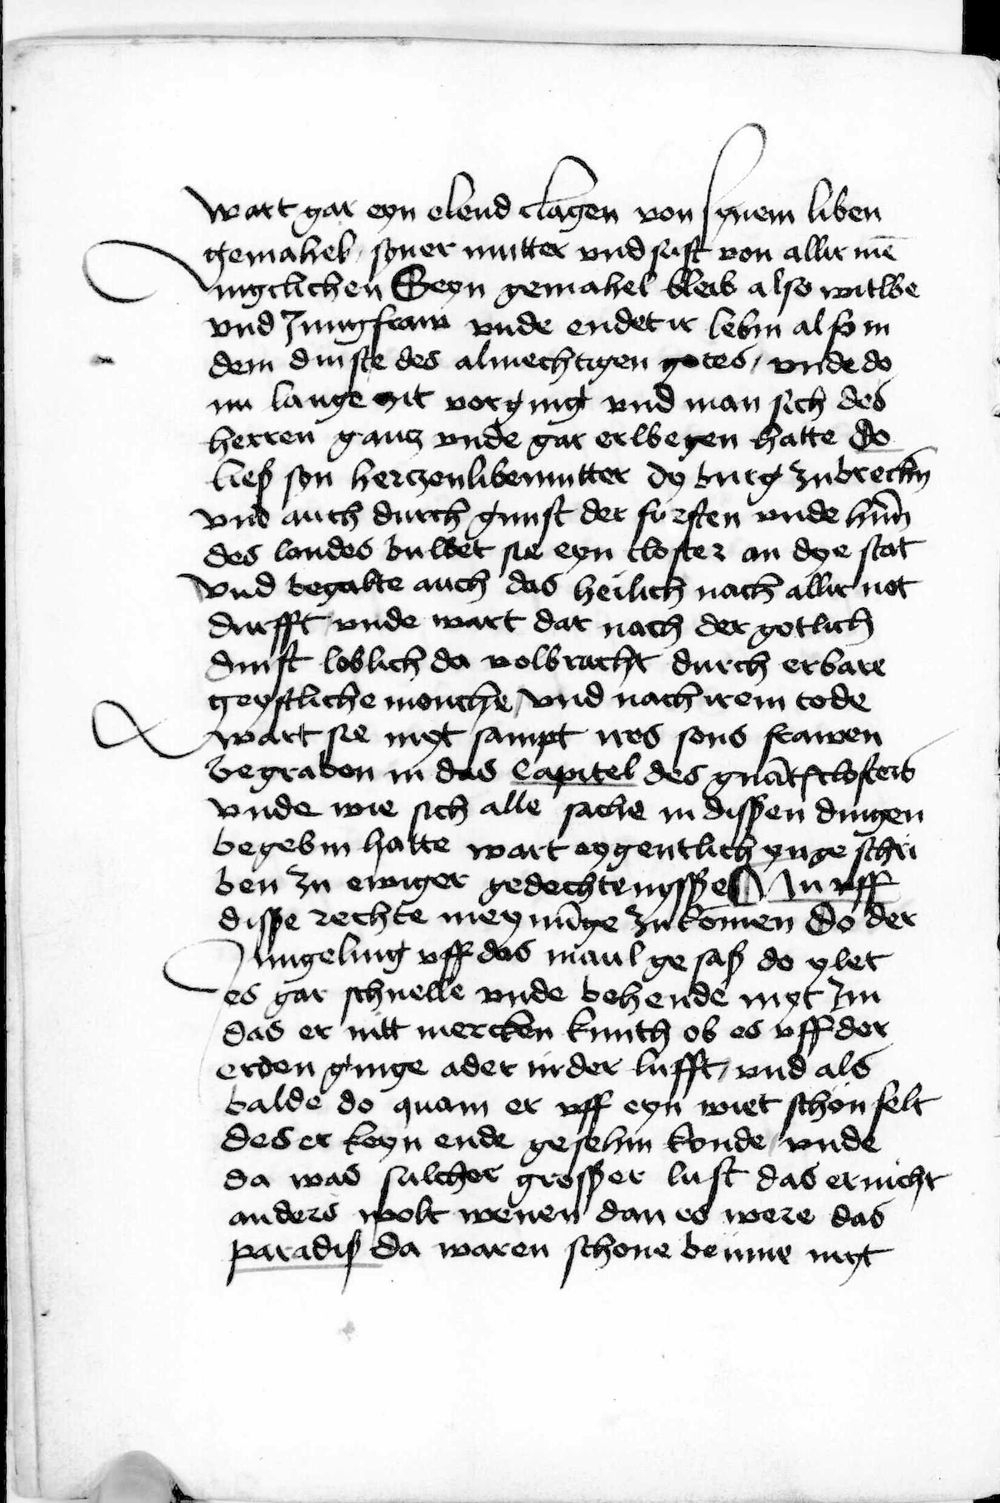 wart gar eyn elend clagen von synem liben
gemahel / syner mutter vnd sust von allir mē
niglichen Seyn gemahel bleib also witwe
vnd Jungfraw vnde endet ir lebin also in
dem dinste des almechtigen gotes / vnde do
nu lange zit vorging vnd man sich des
herren gantz vnde gar erwegen hatte Do
ließ syn hertzenlibe mutter dy burg zubrechin
vnd auch durch gunst der fursten vnde hern̄
des landes buwet sie eyn closter an dye stat
vnd begabte auch das heilich nach allir not
durfft vnde wart dar nach der gotlich
dinst loblich da volbracht durch erbare
geystliche monche / vnd nach irem tode
wart sie myt sampt ires sons frawen
begraben in das Capitel des gnāt closters
vnde wie sich alle sache in dissen dingen
begebin hatte wart eygentlich yngeschri
ben zu ewiger gedechtenysse Nu uff
disse rechte meynūge zu komen Do der
Jungeling vff das maul gesaß do ylet
es gar schnelle vnde behende myt Jm
das er nitt mercken kunth ob es vff der
erden ginge ader in der lufft / vnd als
balde do quam er vff eyn wiet schon felt
des er keyn ende gesehin konde / vnde
da was sulcher grosser lust das er nicht
anders wolt wenen dan es were das
paradiß da waren schone beume myt